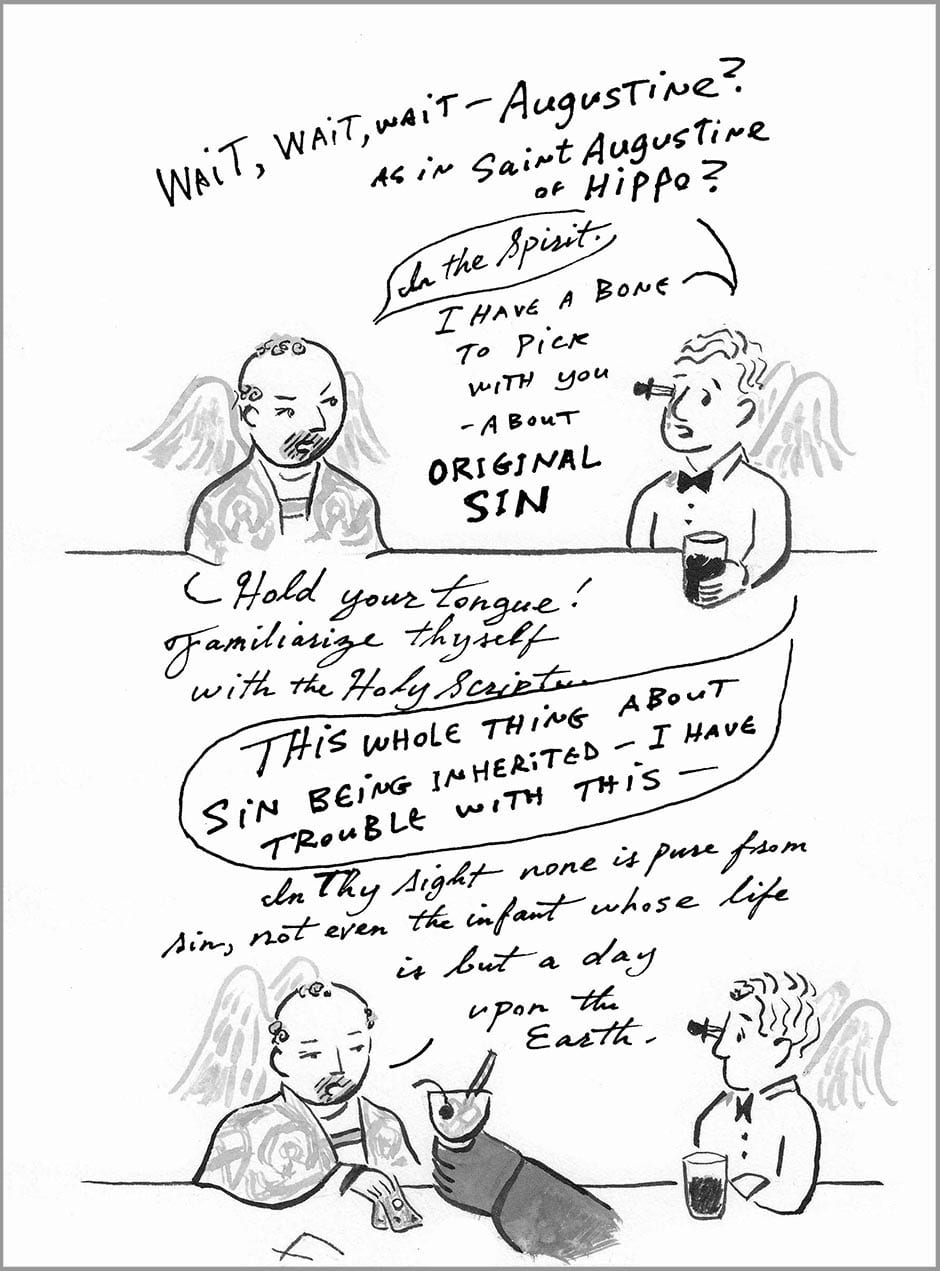 WAIT, WAIT, WAIT – AUGUSTINE?
AS IN SAINT AUGUSTINE
OF HIPPO?
In the Spirit.
I HAVE A BONE
TO PICK
WITH YOU
- ABOUT
ORIGINAL
SIN
Hold your tongue!
Familiarize thyself
with the Holy Scriptu...
THIS WHOLE THING ABOUT
SIN BEING INHERITED – I HAVE
TROUBLE WITH THIS –
In Thy sight none is pure from
sin, not even the infant whose life
is but a day
upon the
Earth.